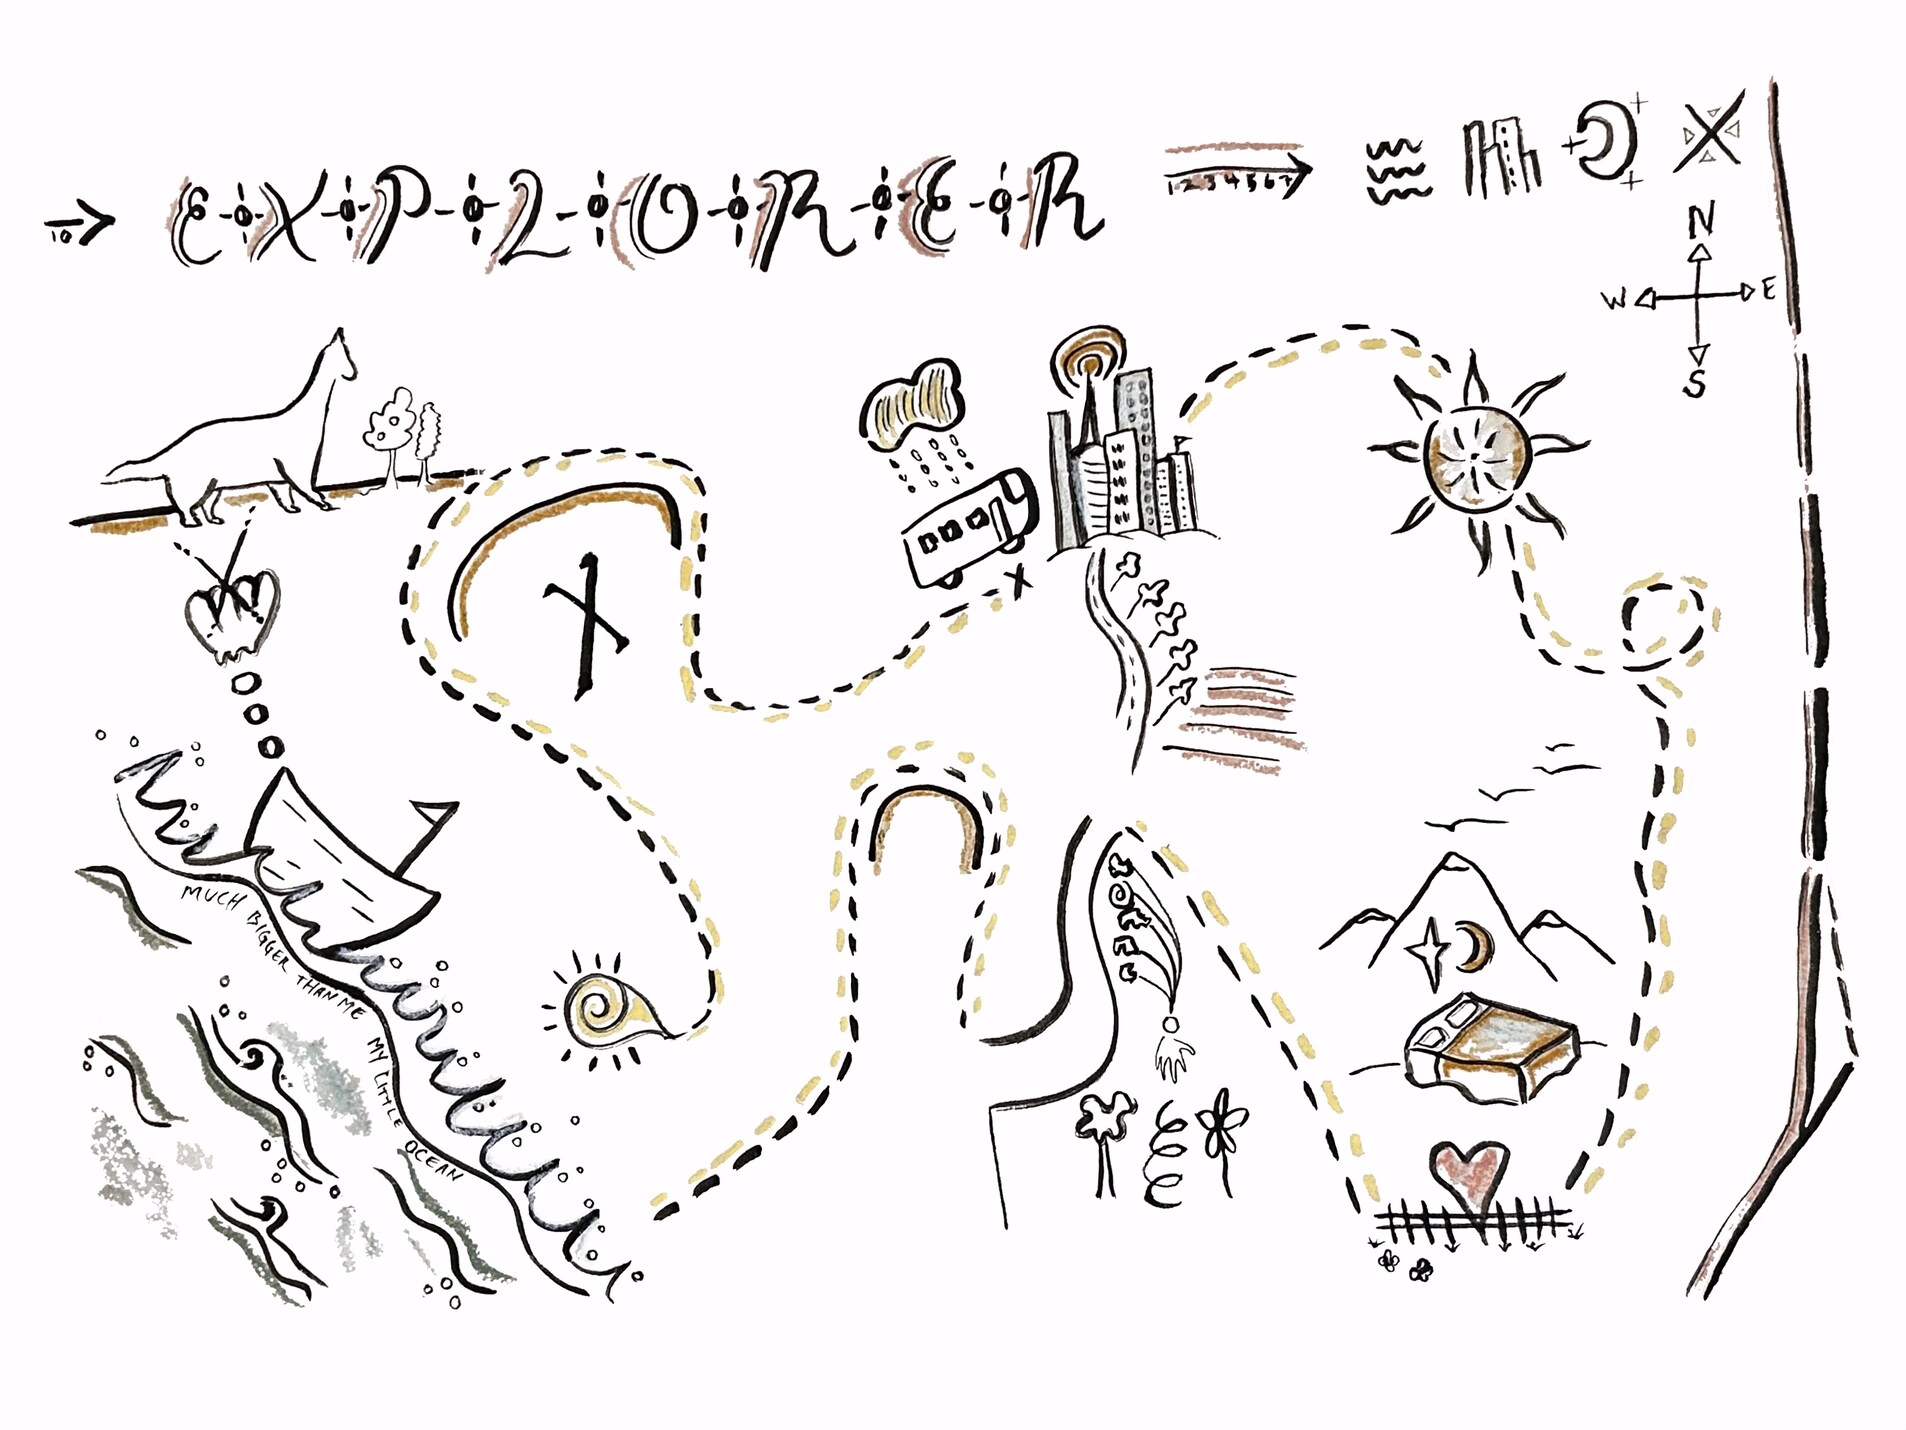 10
E X P L O R E R
1 2 3 4 5 6 7
N
W E
S
MUCH BIGGER THAN ME
MY LITTLE OCEAN